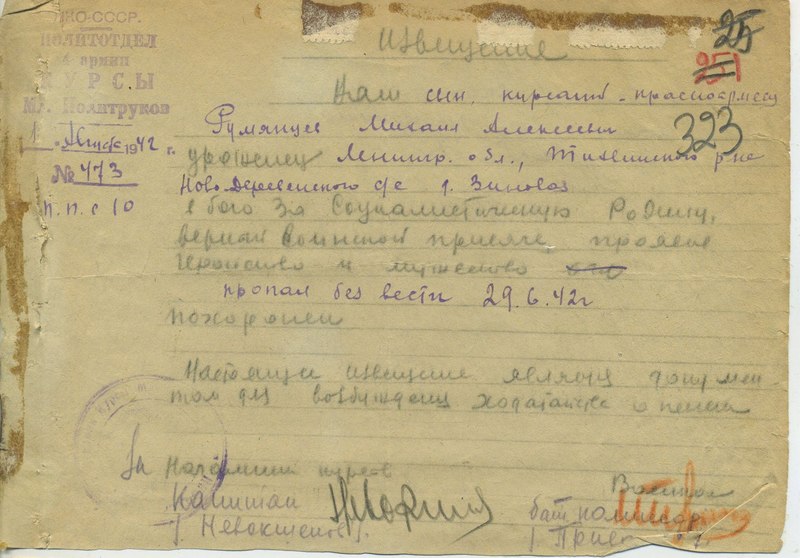 НКО-СССР.
ПОЛИТОТДЕЛ
армии
КУРСЫ
Мл. Политруков
1942 г.
№ 473
п.п.с 10
25
251
323
Извещение
Ваш сын, курсант-красноармеец
Румянцев Михаил Алексеевич
уроженец Ленингр. обл., Тихвинского р-на
Ново-Деревенского с/с д. Зиновая
в бою за Социалистическую Родину,
верный воинской присяге, проявив
геройство и мужество
пропал без вести 29.6.42г
похоронен
Настоящее извещение является докумен-
том для возбуждения ходатайства о пенсии
За Начальник курсов
Капитан
Военком
бат комиссар